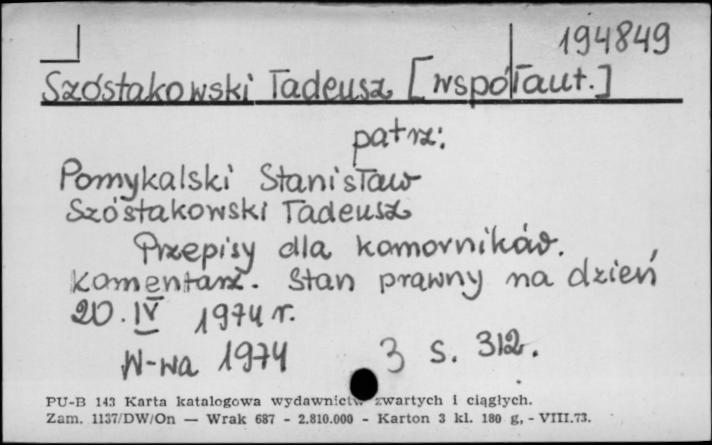 194849
Szóstakowski Tadeusz [współaut.]
patrz:
Pomykalski Stanisław
Szóstakowski Tadeusz
Przepisy dla komorników.
Komentarz. Stan prawny na dzień
20. IV 1974 r.
W-wa 1974 3 s. 312.
PU-B 143 Karta katalogowa wydawnictw zwartych i ciągłych.
Zam. 1137/DW/On — Wrak 687 - 2.810.000 - Karton 3 kl. 180 g, - VIII.73.